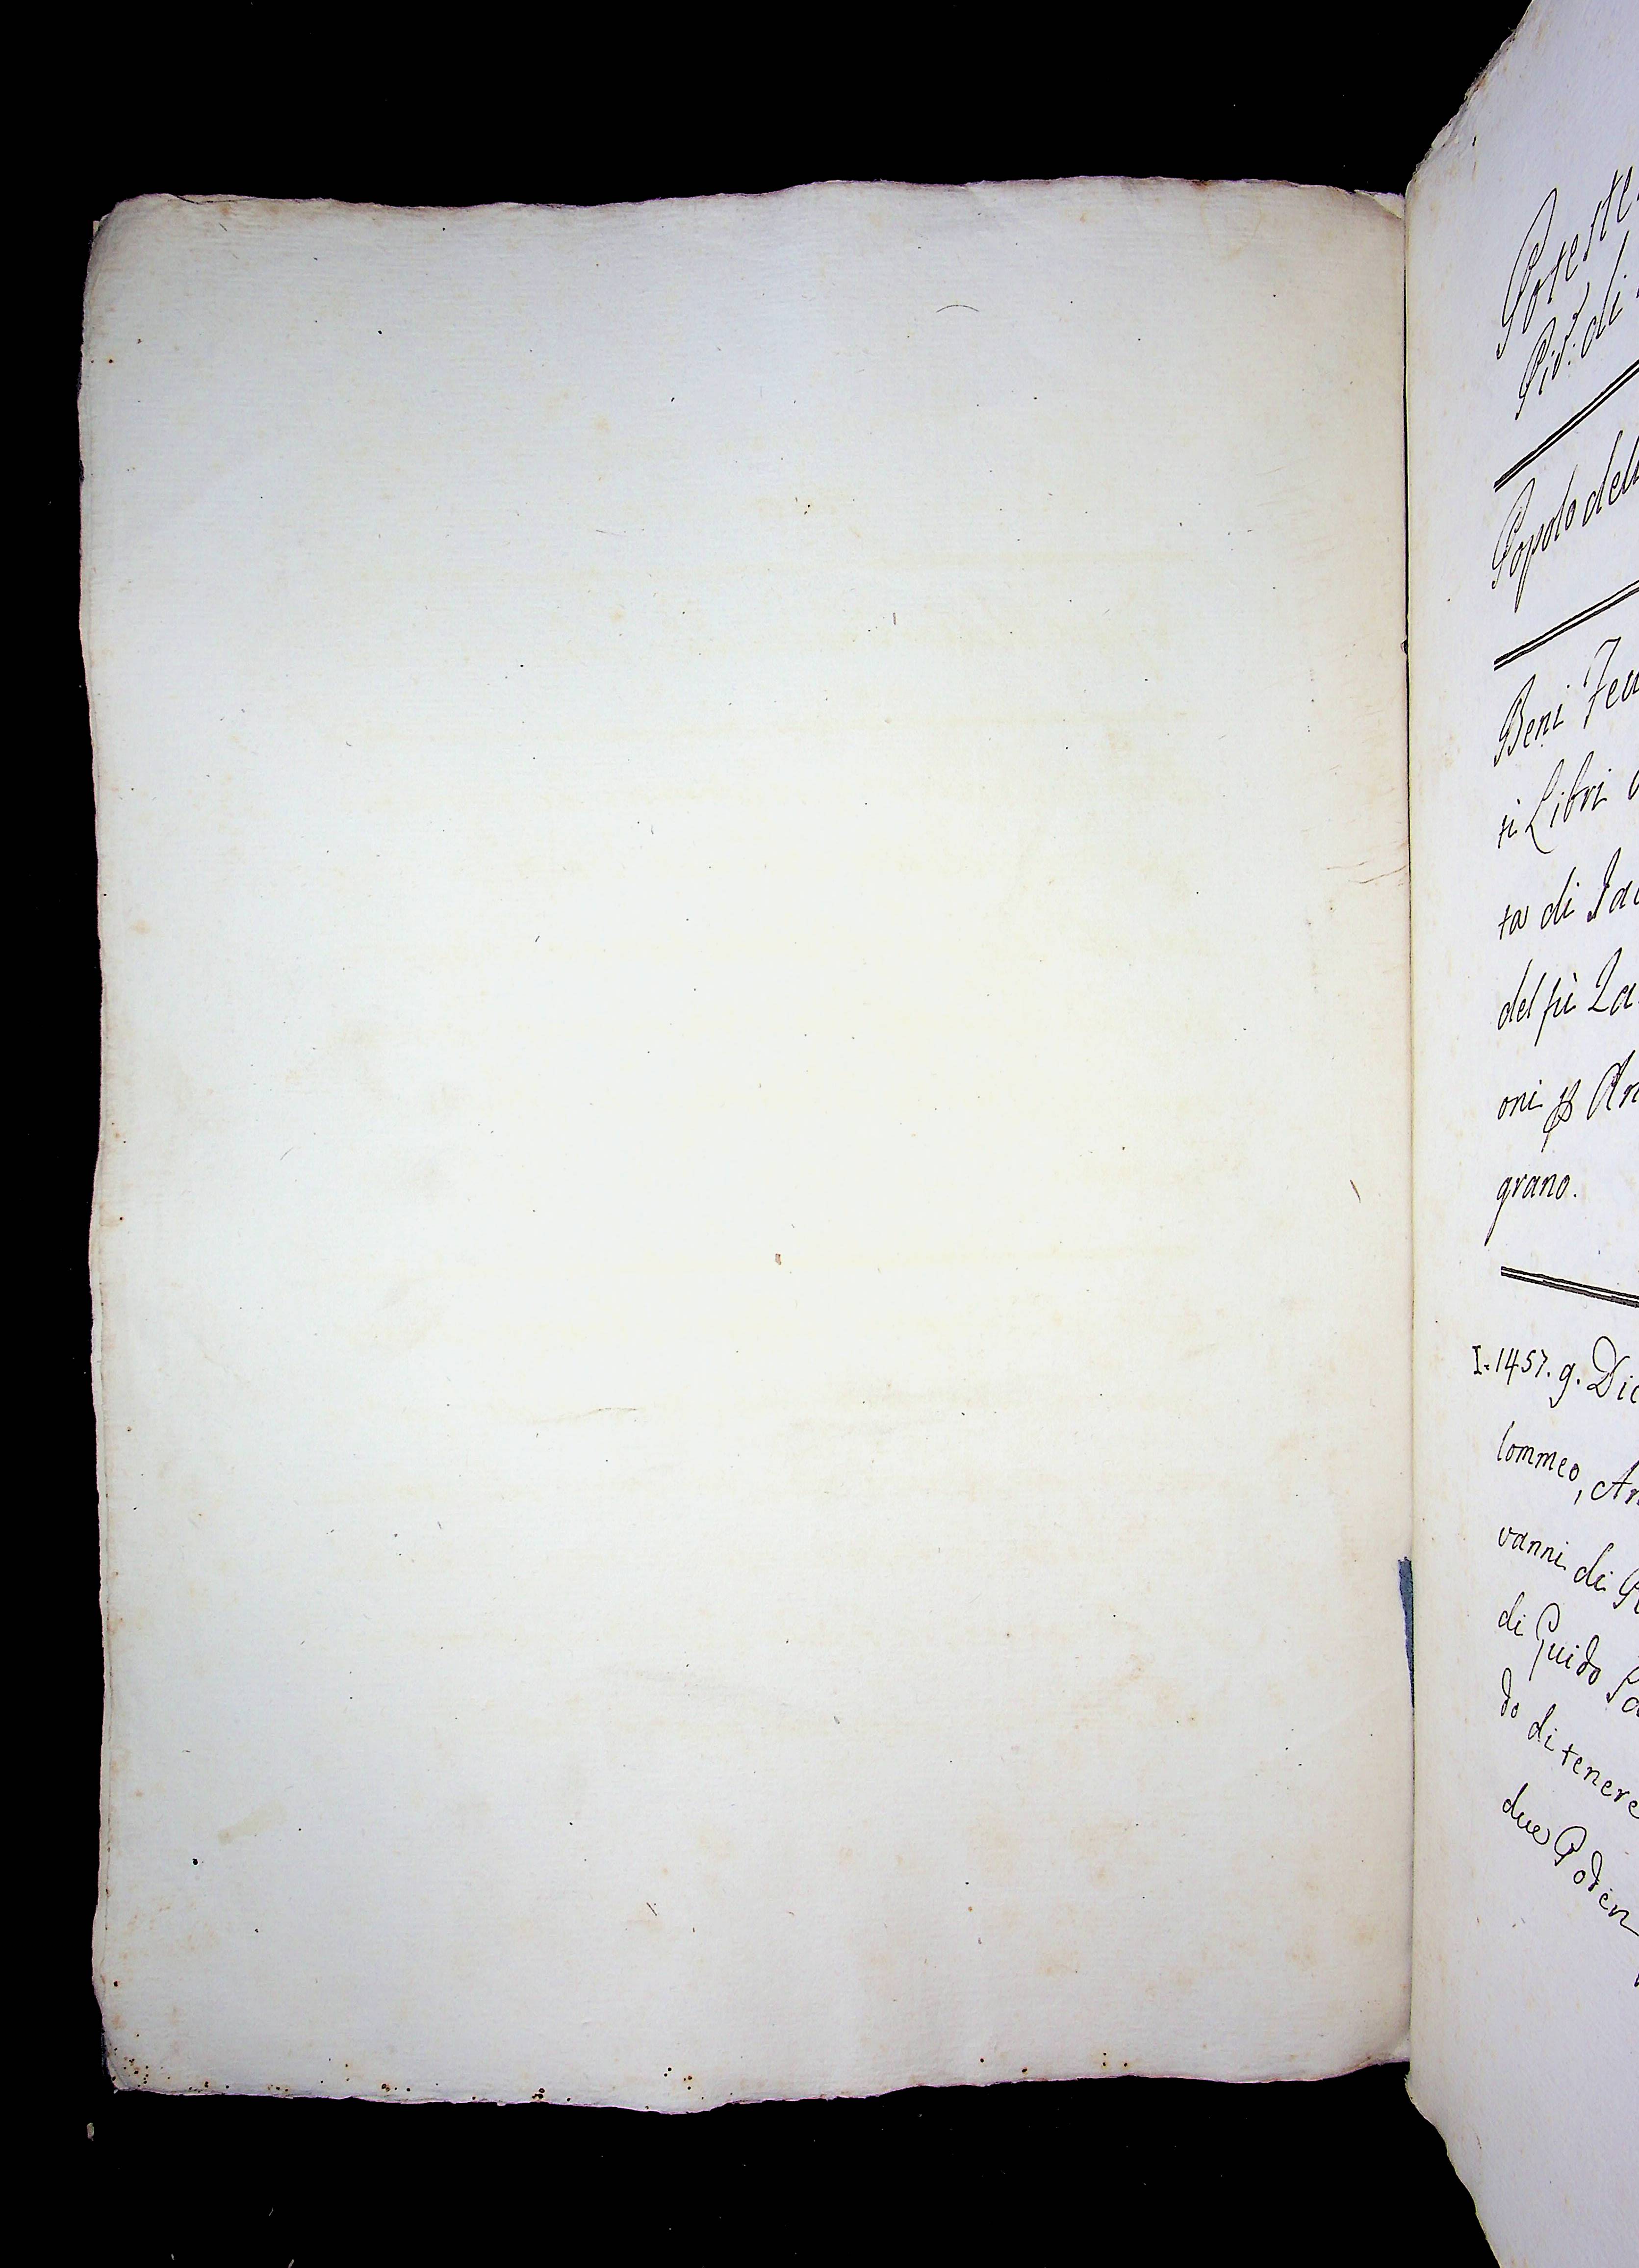 Poteste
Piv. di
Popolo dell
Beni Feu
ti Libri
ta di Jac
del fù La
oni An
grano.
I. 1457. 9. Dic
lommeo, An
vanni di
di Guido
do di tenere
due Poderi